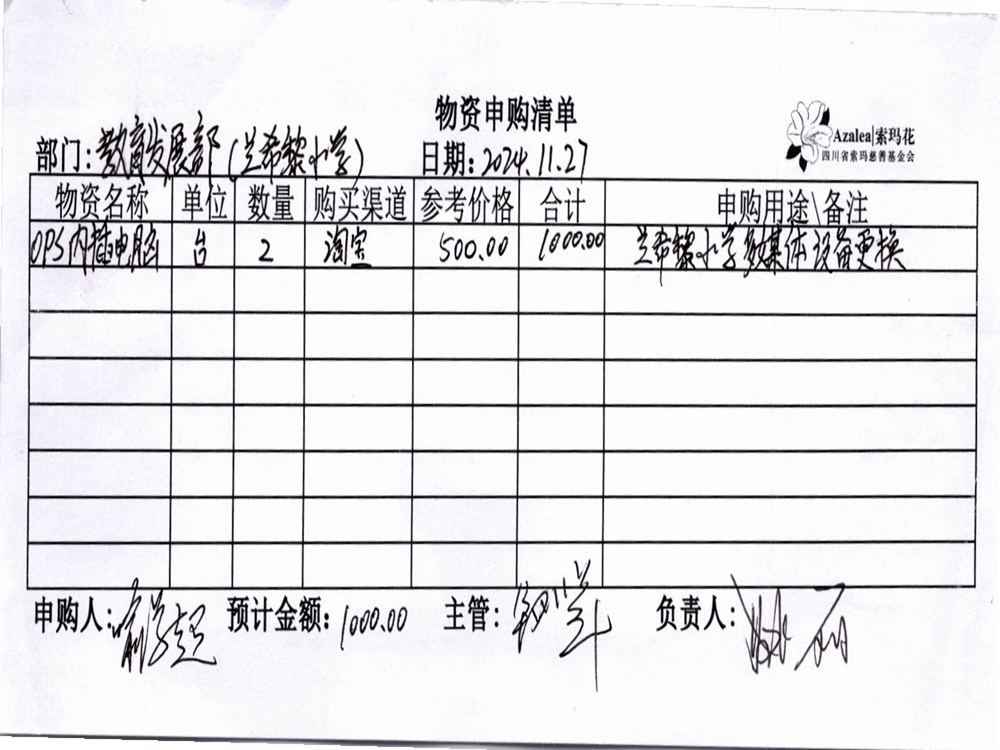 物资申购清单
Azalea|索玛花
四川省索玛慈善基金会
部门:教育发展部(兰希黎小学) 日期:2024.11.27
物资名称 单位 数量 购买渠道 参考价格 合计 申购用途\备注
OPS内插电脑 台 2 淘宝 500.00 1000.00 兰希黎小学多媒体设备更换
申购人: 预计金额:1000.00 主管: 负责人: